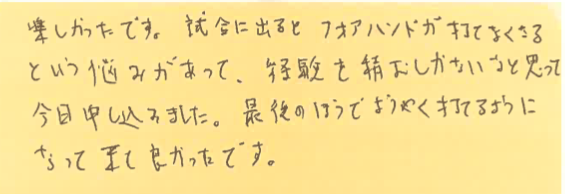 楽しかったです。試合に出るとフォアハンドが打てなくなる
という悩みがあって、経験を積むしかないなと思って
今日申し込みました。最後のほうでようやく打てるように
なって来て良かったです。